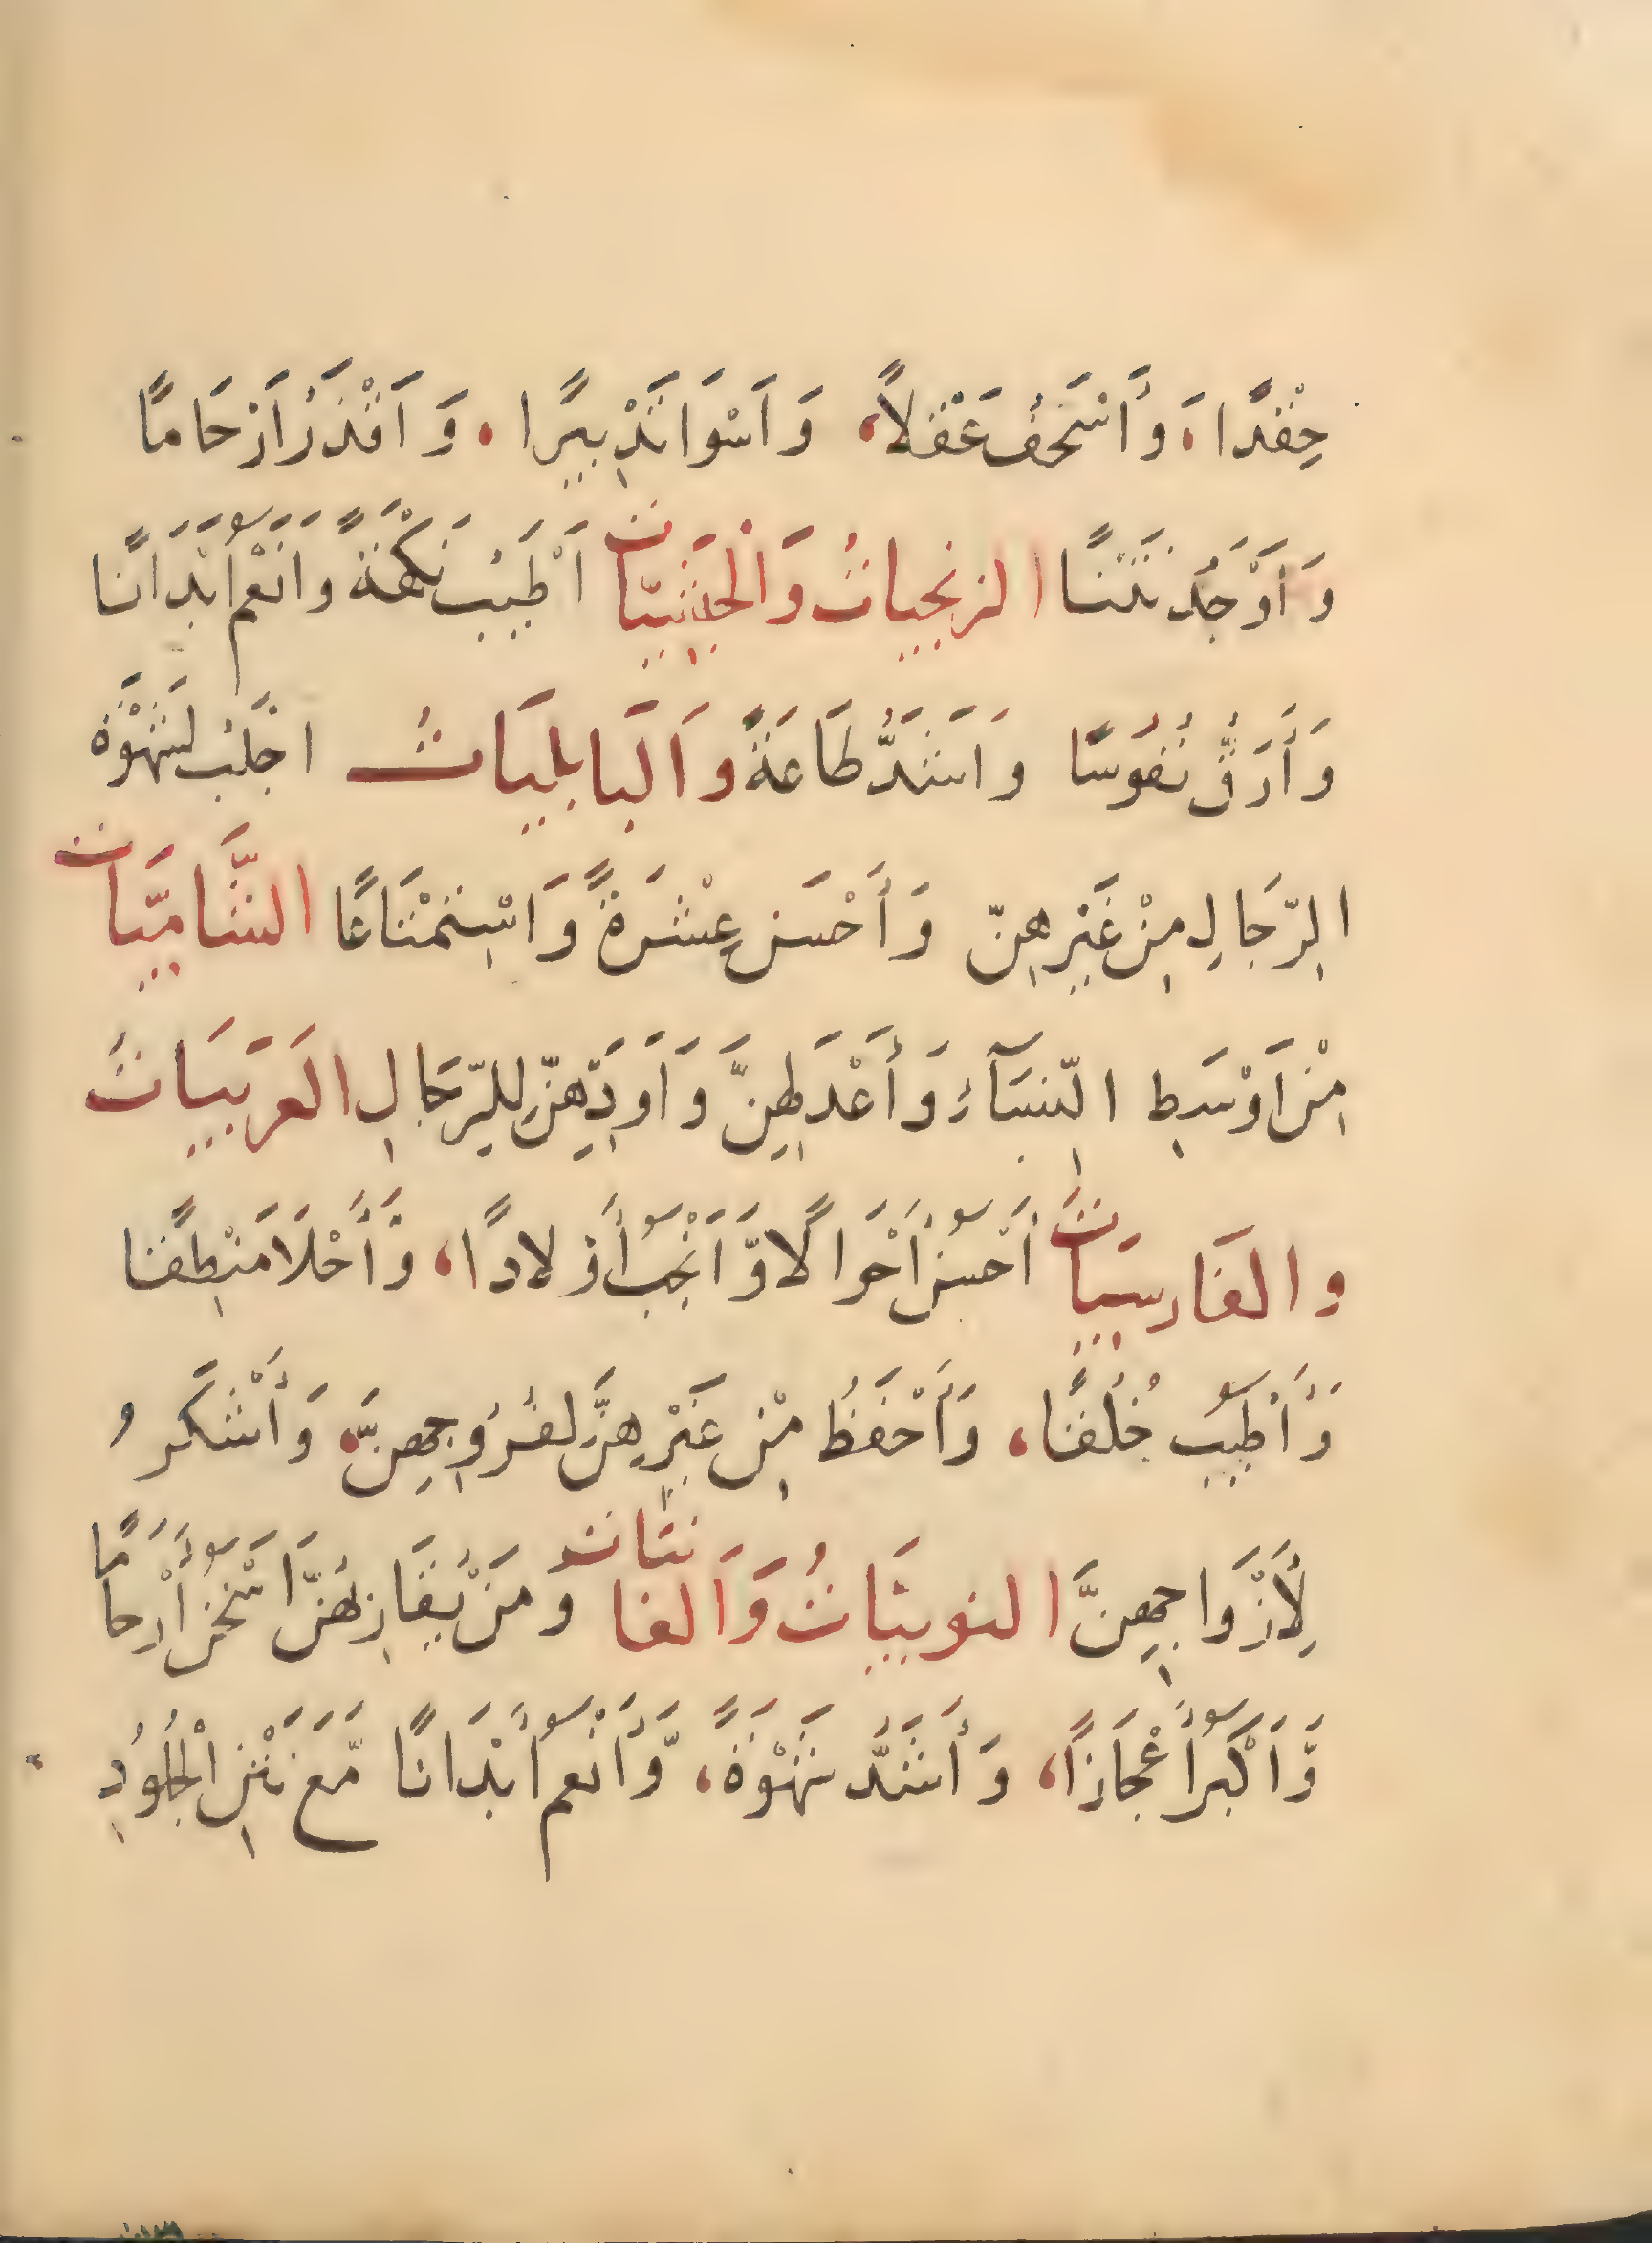 حِقْدًا، وَأَسْخَفُ عَقْلاً، وَاَسْوَا تَدْبِيرًا، وَاَقْذَرُ اَرْحَامًا
وَاَوْجَدُ نَتَنًا الزنجياتُ وَالْحَبَشِيّات اَطْيَبُ نَكْهَةً وَانَعْمُ اَبْدَانًا
وَأَرَقُّ نُفُوسًا وَاَشَدُّ طَاعَةً وَالبَابِليَاتُ اجْلَبُ لشَهْوَة
الرّجَالِ مِنْ غَيْرِهِنّ وَأَحْسَن عِشْرَةً وَاسْتِمْتَاعًا الشَّامِيَّات
مِنْ اَوْسَطِ النِّسَآءِ وَأَعْدَلِهِنَّ وَاَوَدِّهِنَّ لِلرِّجَالِ العَرَبِيَاتُ
والفَارِسيَات أَحْسَنُ اَحْوَالًا وَّاَنْجَبُ أَوْلادًا، وَّأَحْلَا مَنْطِقًا
وَّأَطْيَبُ خُلُقًا، وَأَحْفَظُ مِن غَيْرِهِنَّ لفُرُوجِهِنَّ، وَأَشْكَرُ
لِأَزْوَاجِهِنَّ النوبِيَّاتُ وَالفانيَات وَمَنْ يُقَارِبُهُنَّ اَسْخَنُ أَرْحَامًا
وَّاَكْبَرُ أَعْجَازًا، وَأَشَدُّ شَهْوَةً، وَّأَنْعَمُ أَبْدَانًا مَّعَ نَتْنِ الْجُلُودِ